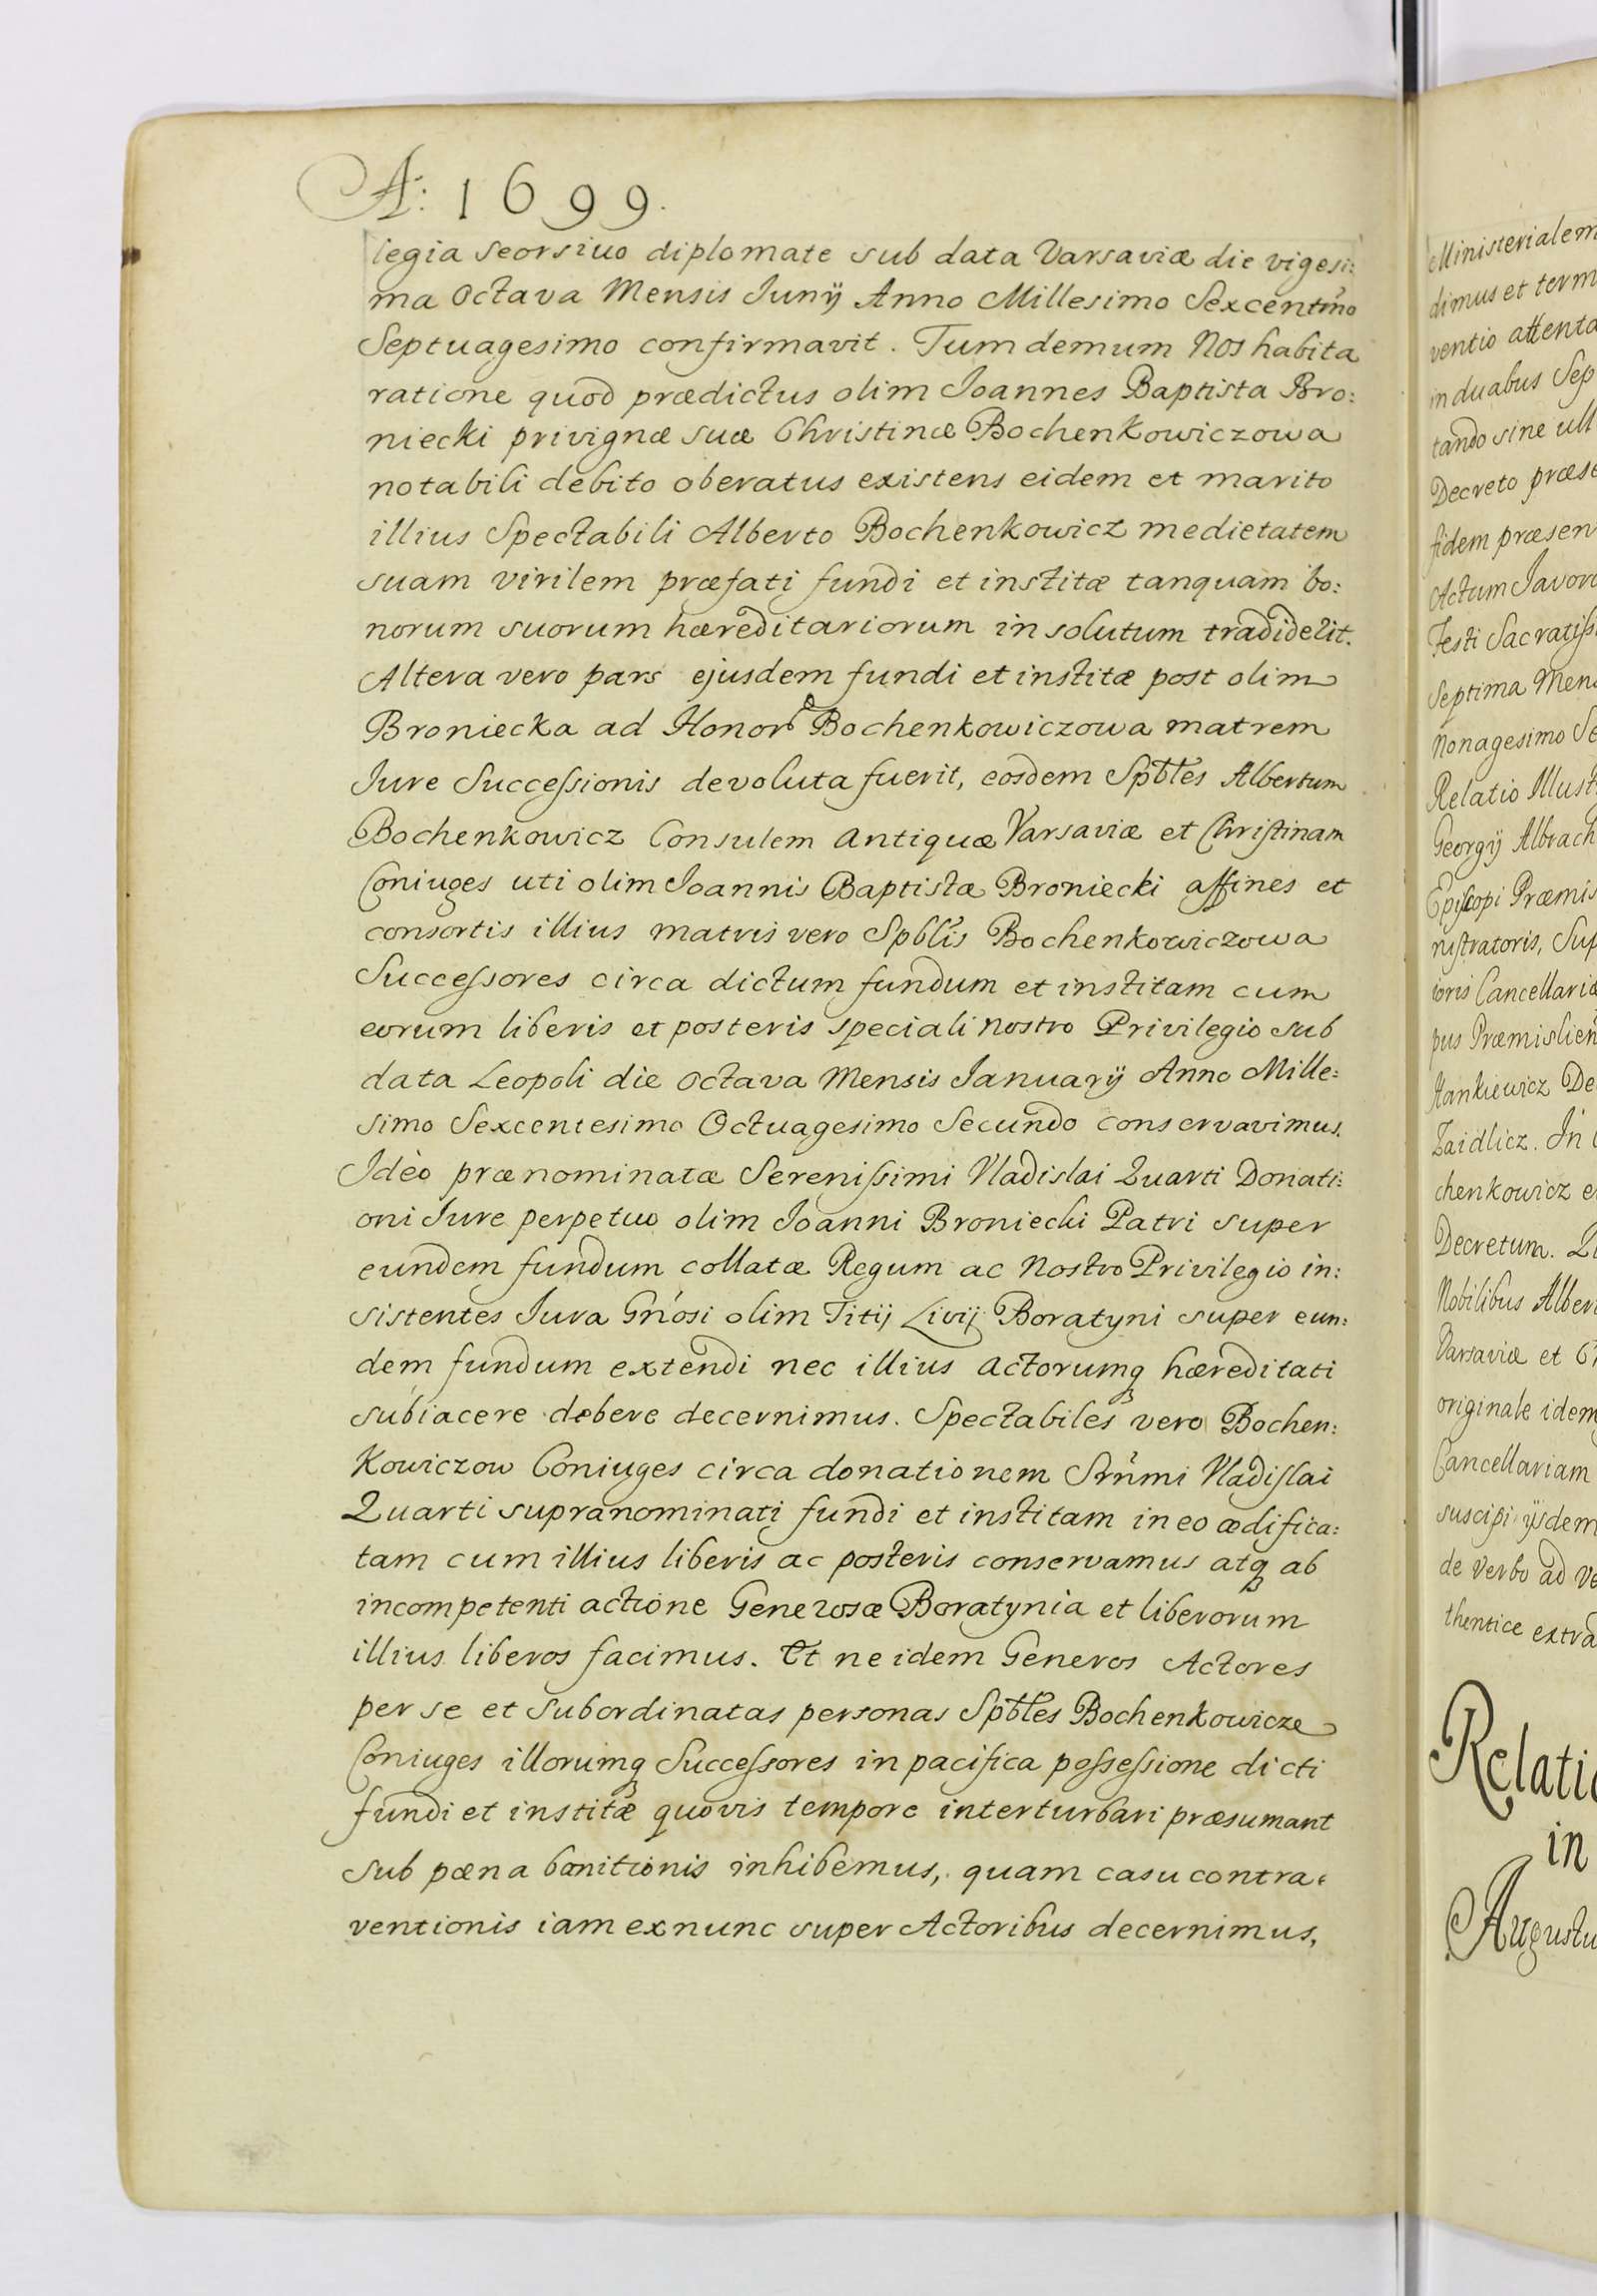 A: 1699.
legia seorsivo diplomate sub data Varsaviæ die vigesi:
ma Octava Mensis Iunij Anno Millesimo Sexcentmo
Septuagesimo confirmavit. Tum demum Nos habita
ratione quod prædictus olim Ioannes Baptista Bro:
niecki privignæ suæ Christinæ Bochenkowiczowa
notabili debito oberatus existens eidem et marito
illius Spectabili Alberto Bochenkowicz medietatem
suam virilem præfati fundi et institæ tanquam bo:
norum suorum hæreditariorum in solutum tradiderit.
Altera vero pars ejusdem fundi et institæ post olim
Broniecka ad Honor Bochenkowiczowa matrem
Iure Successionis devoluta fuerit, eosdem Spbles Albertum
Bochenkowicz Consulem Antiquæ Varsaviæ et Christinam
Coniuges uti olim Ioannis Baptistæ Broniecki affines et
consortis illius matris vero Spblis Bochenkowiczowa
Successores circa dictum fundum et institam cum
eorum liberis et posteris speciali nostro Privilegio sub
data Leopoli die Octava Mensis Ianuarij Anno Mille:
simo Sexcentesimo Octuagesimo Secundo conservavimus.
Idèo prænominatæ Serenissimi Vladislai Quarti Donati:
oni Iure perpetuo olim Ioanni Broniecki Patri super
eundem fundum collatæ Regum ac Nostro Privilegio in:
sistentes Iura Gnosi olim Titij Livij Boratyni super eun:
dem fundum extendi nec illius Actorumq hæreditati
subiacere debere decernimus. Spectabiles vero Bochen:
Kowiczow Coniuges circa donationem Srnmi Vladislai
Quarti supranominati fundi et institam in eo ædifica:
tam cum illius liberis ac posteris conservamus atq ab
incompetenti actione Generosæ Boratynia et liberorum
illius liberos facimus. Et ne idem Generos Actores
per se et Subordinatas personas Spbles Bochenkowicze
Coniuges illorumq Successores in pacifica possessione dicti
fundi et institæ quovis tempore interturbari præsumant
sub pæna banitionis inhibemus, quam casu contra:
ventionis iam ex nunc super Actoribus decernimus,
Ministerialem
dimus et term
ventio attenta
in duabus Sep
tando sine ull
Decreto præse
fidem præsen
Actum Iavoro
Festi Sacratissi
Septima Mens
Nonagesimo Se
Relatio Illust
Georgij Albrach
Episcopi Præmis
nistratoris, Sup
ioris Cancellariæ
pus Præmislien
Hankiewicz De
Zaidlicz. In
chenkowicz e
Decretum. Q
Nobilibus Alber
Varsaviæ et C
originale idem
Cancellariam
suscipi ijsdem
de verbo ad ve
thentice extra
Relatio
in
Augustu